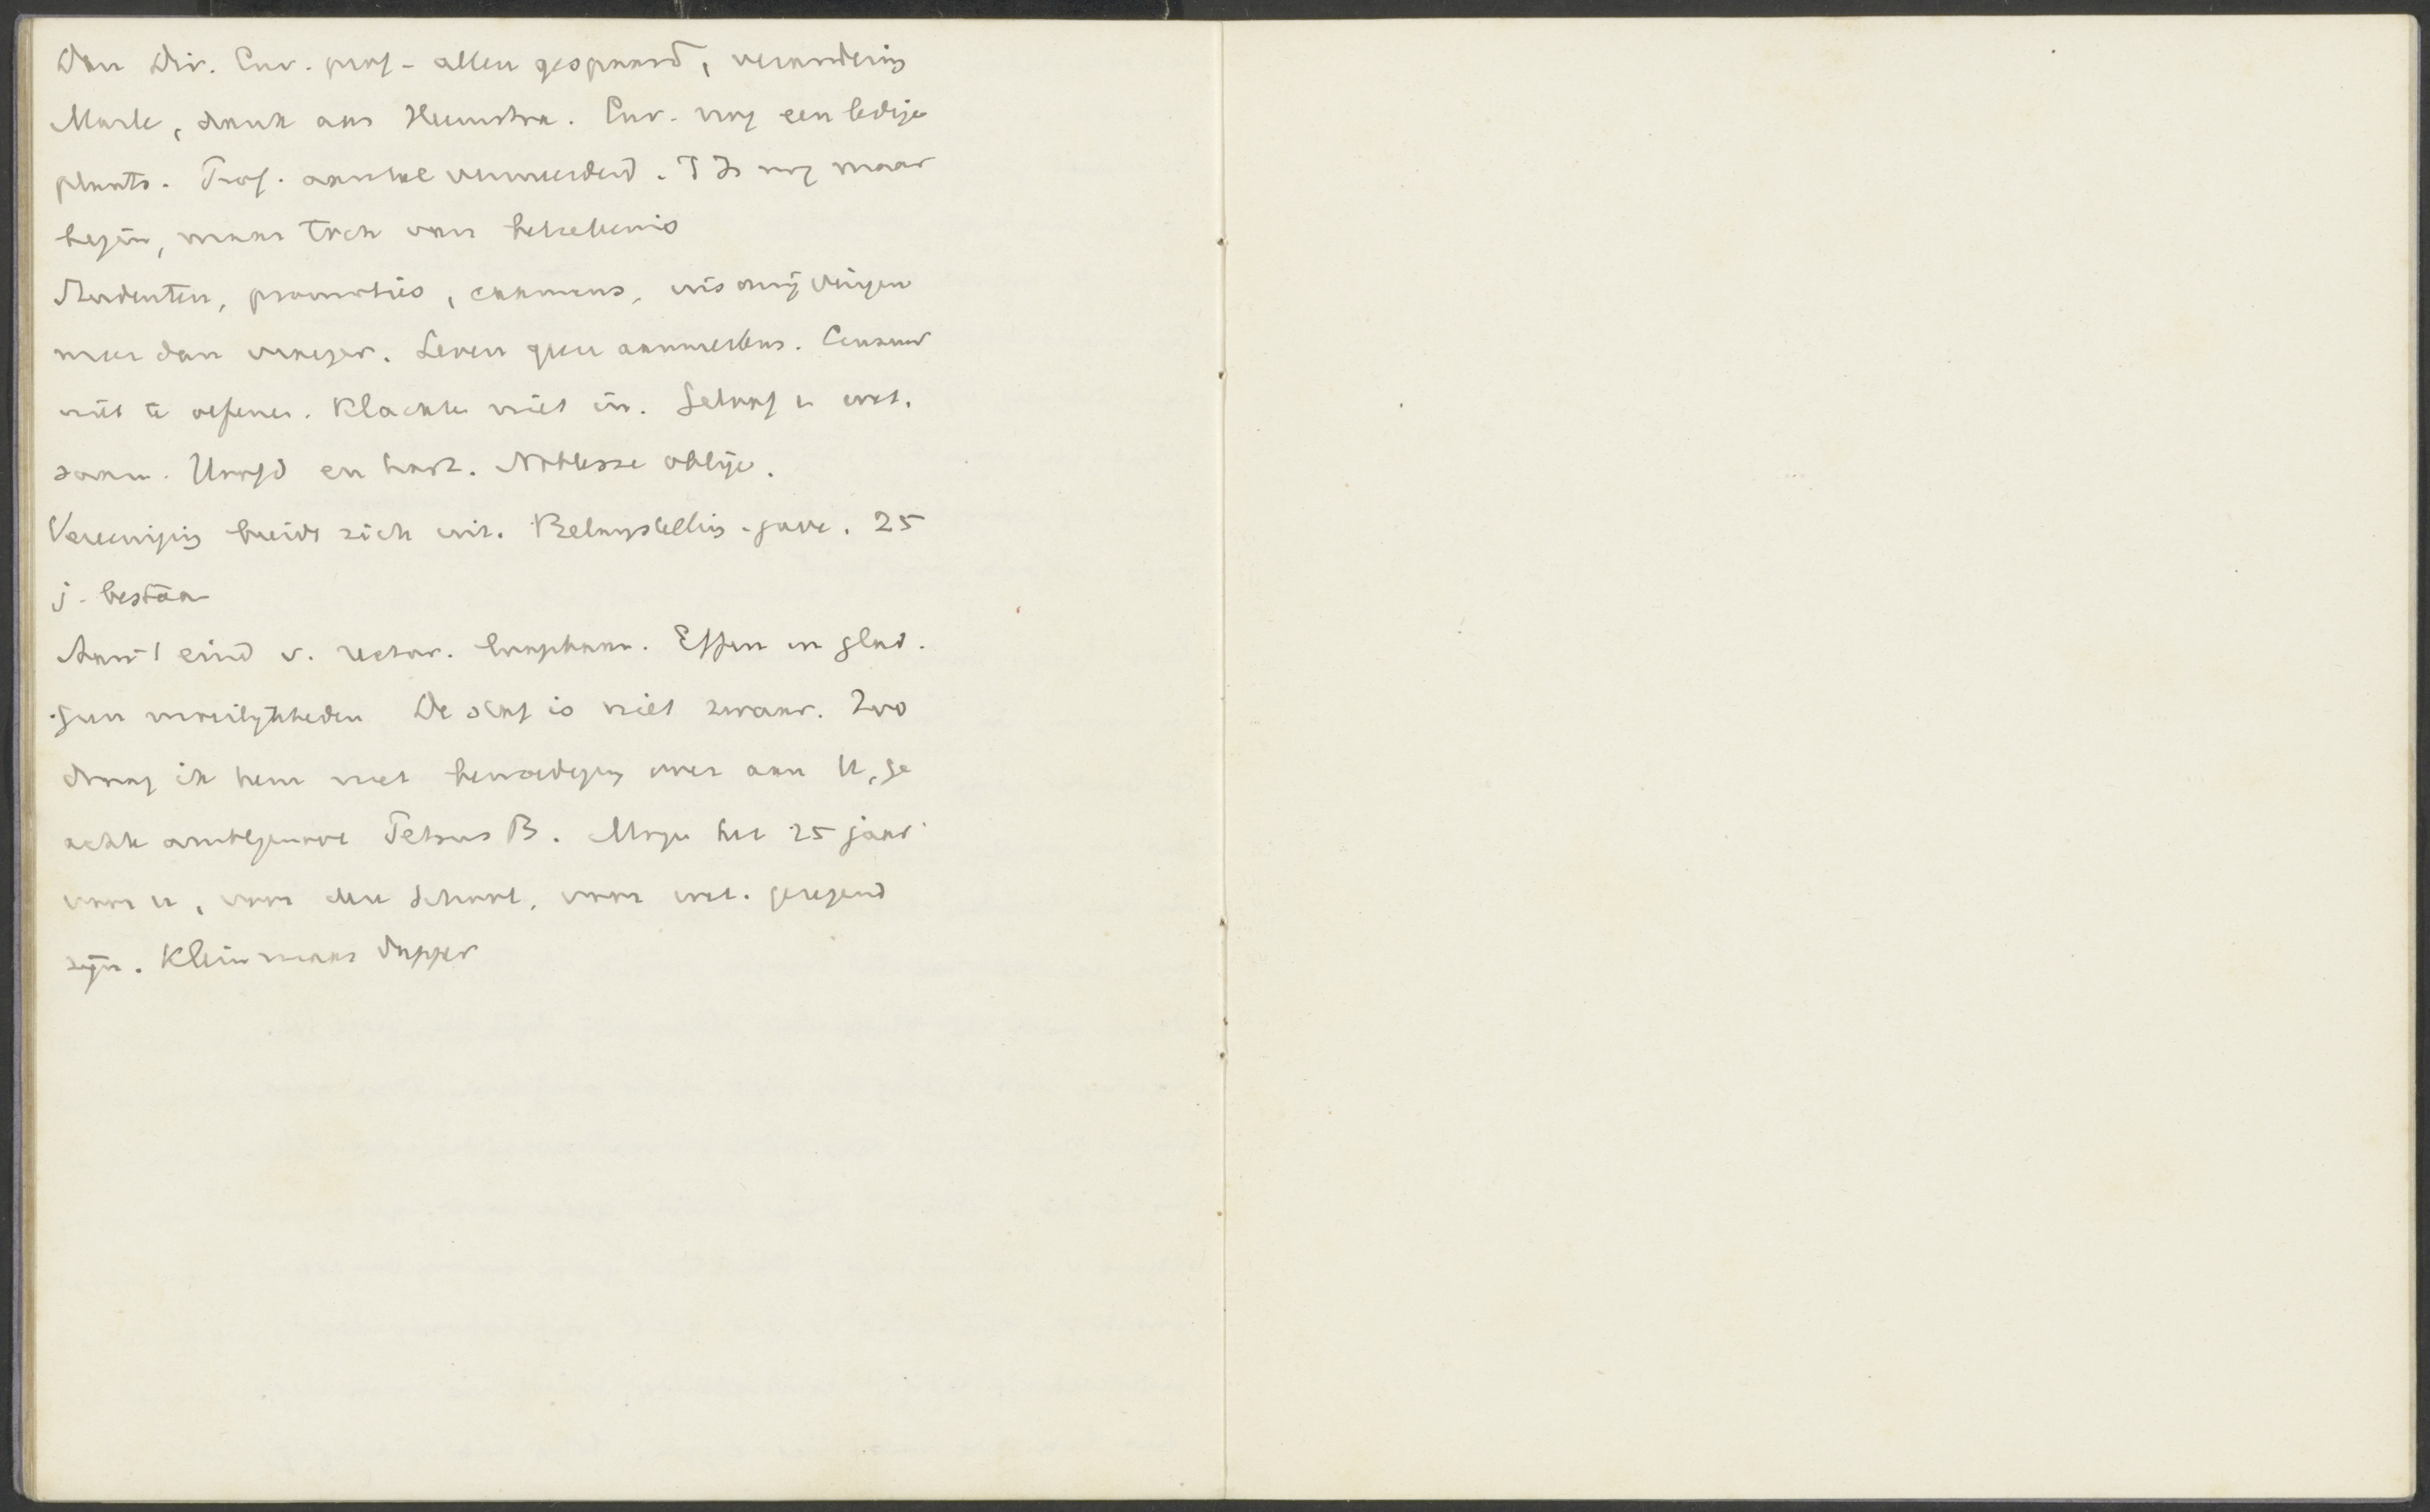 Dan Dir. Cur. prof - allen gespaard, verandering
Marle, dank aan Heemstra. Cur. nog een ledige
plaats. Prof. aantal vermeerderd. 't Is nog maar
begin, maar toch van beteekenis
Studenten, promoties, examens, wisselingen
meer dan vroeger. Leven geen aanmerkens. Censuur
niet te oefenen. Klachten niet in. Geloof en wet.
saam. Hoofd en hart. Noblesse oblige.
Vereeniging breidt zich uit. Belangstelling - gave. 25
j. bestaan
Aan 't eind v. rector. loopbaan. Effen en glad.
geen moeilijkheden De staf is niet zwaar. Zoo
draag ik hem met over aan U, ge
achte ambtgenoot Petrus B. Moge het 25 jaar
voor u, voor den School, voor wet. gezegend
zijn. Klein maar dapper